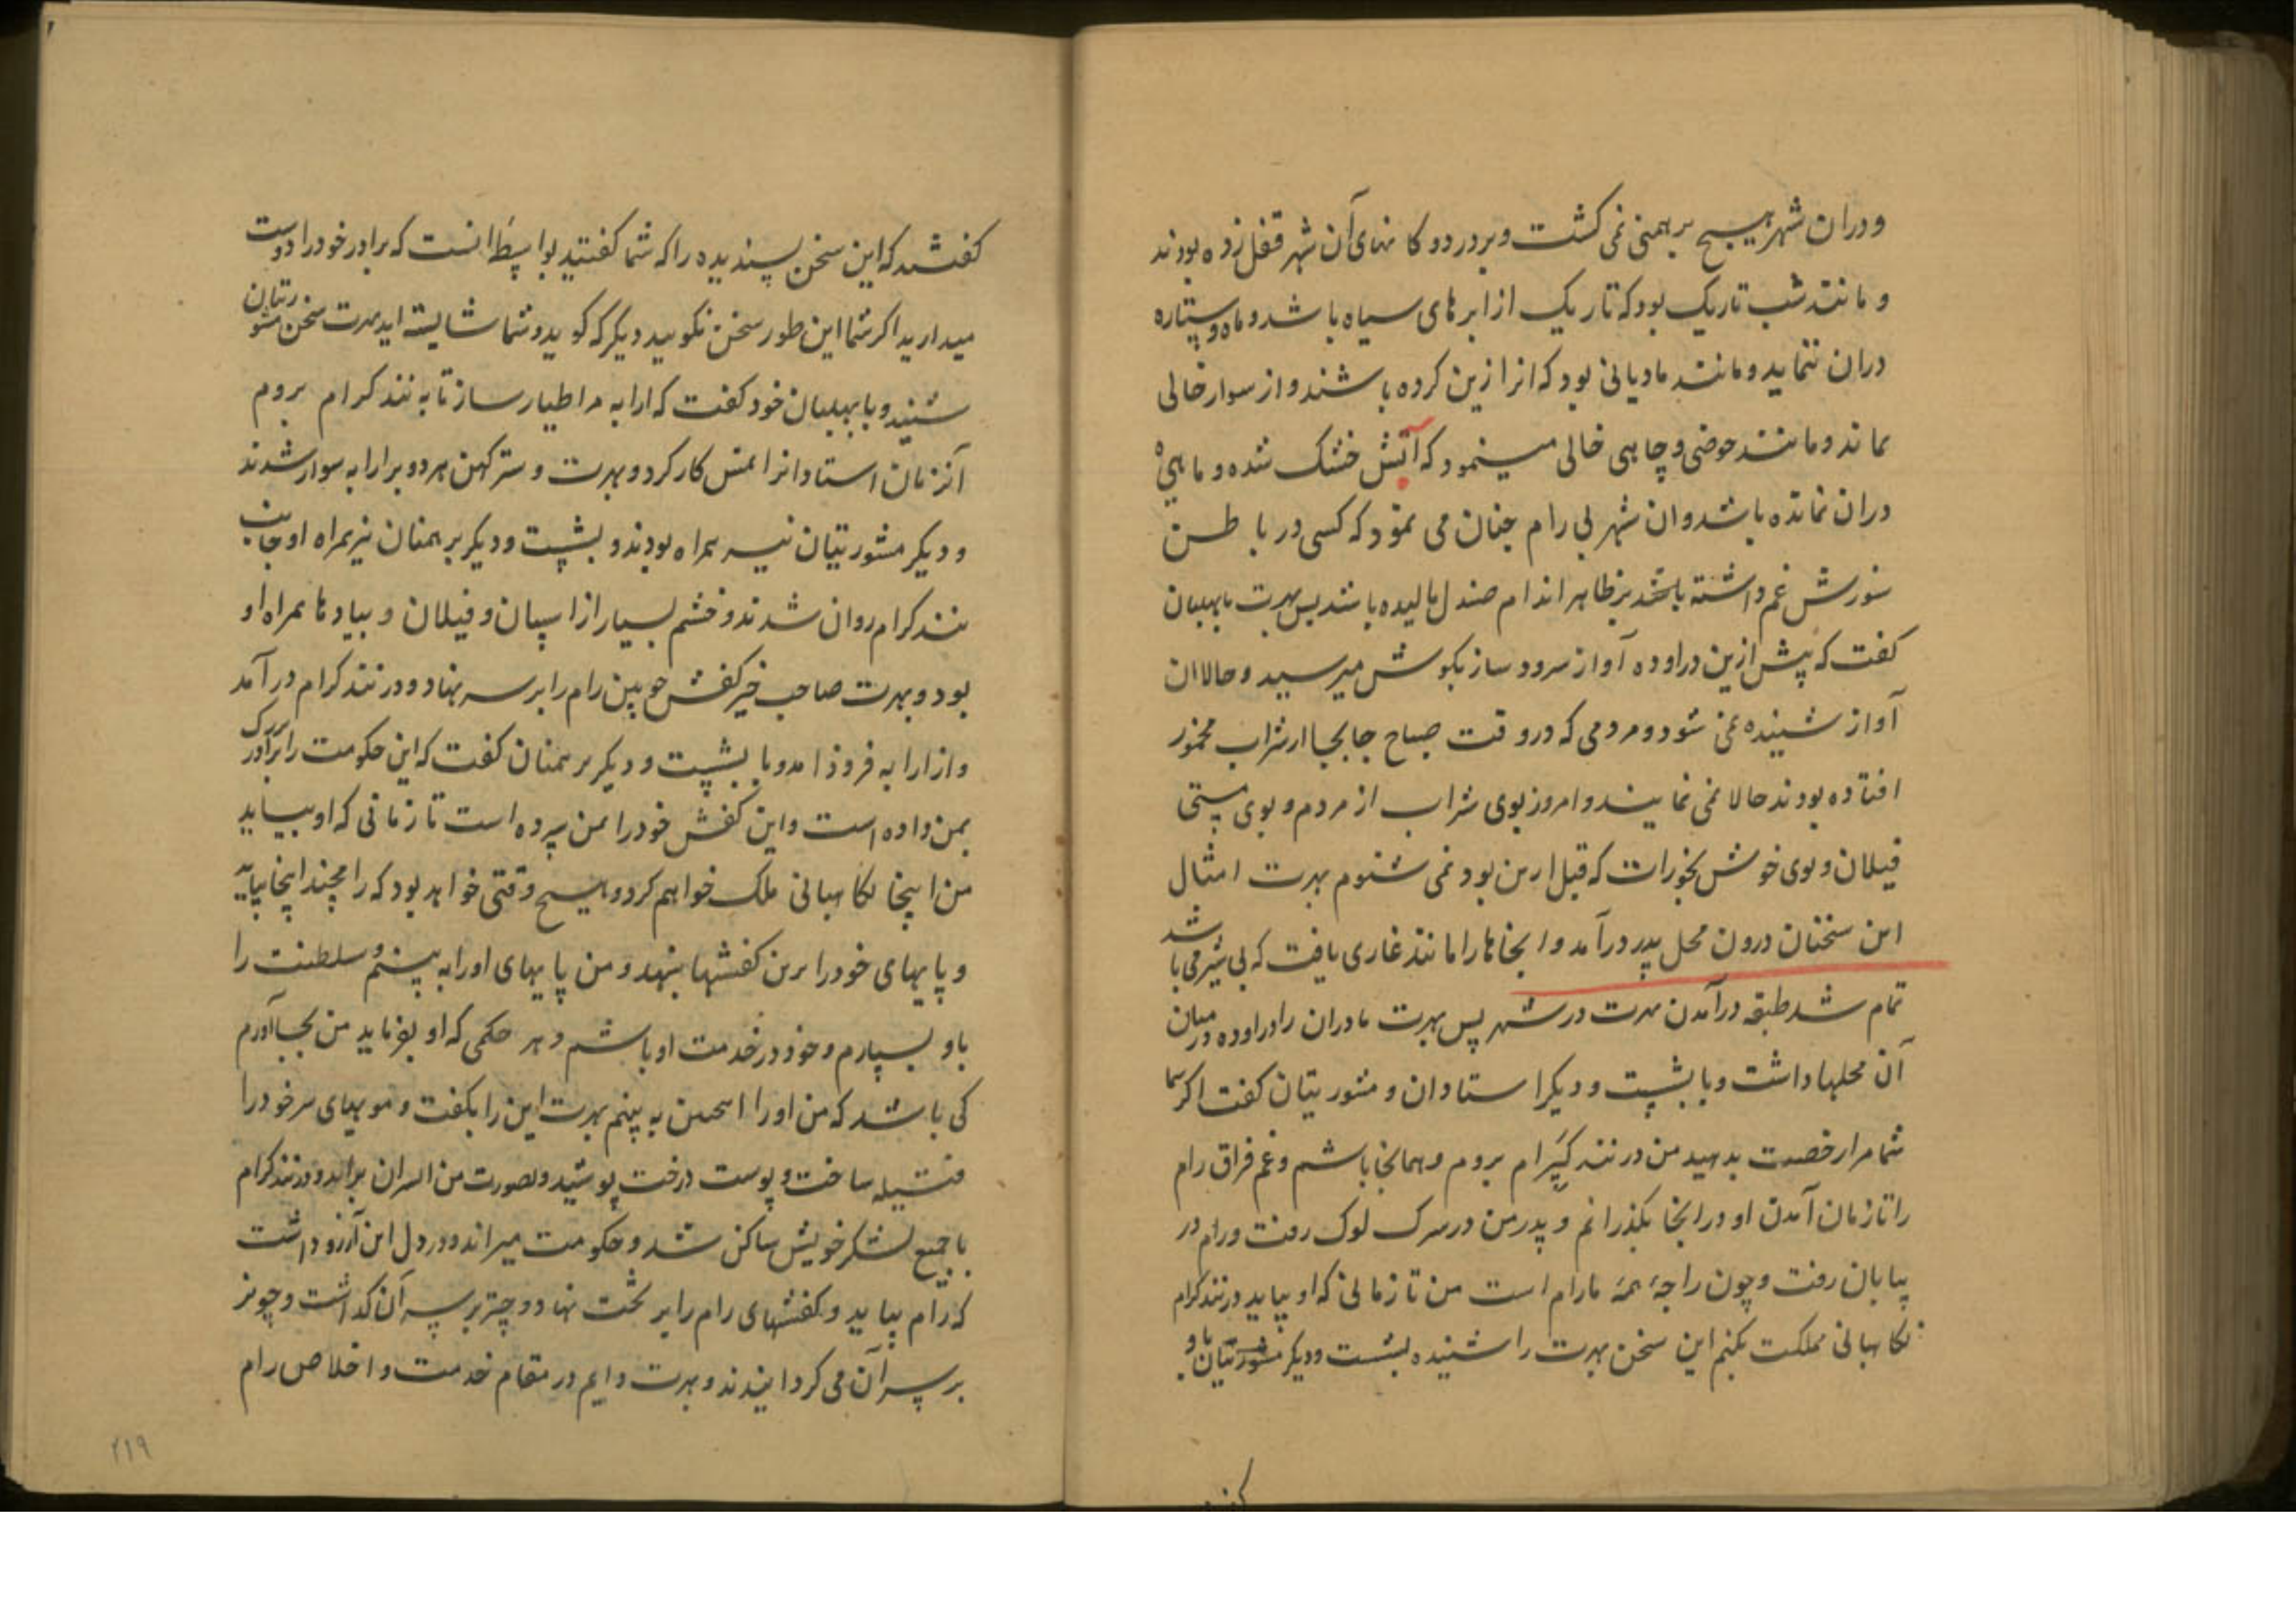 ودران شهر هیچ برهمنی نمی کشت وبردر دوکا نهای آن شهر قفل زده بودند
و مانند شب تاریک بود که تاریک از ابرهای سیاه باشد وماه وستاره
دران ننماید ومانند مادیانی بود که انرا زین کرده باشند واز سوار خالی
بماند ومانند حوضی وچاهی خالی مینمود که آتش خشک شده و ماهی
دران نمانده باشد وان شهر بی رام چنان می نمود که کسی در باطن
سوزش غم داشته باشد بر ظاهر اندام صندل مالیده باشد پس بهرت بابهلبان
کفت که پیش ازین در اوده آواز سرود ساز بکوش میرسید وحالا ان
آواز شنیده نمی شود ومردمی که دروقت صباح جابجا از شراب مخمور
افتاده بودند حالا نمی نمایند وامروز بوی شراب از مردم وبوی مستی
فیلان وبوی خوش بخورات که قبل ازین بود نمی شنوم بهرت امثال
این سخنان درون محل پدر درآمد وانجاها را مانند غاری یافت که بی شیر می باشد
تمام شد طبقه درآمدن بهرت در شهر پس بهرت مادران را در اوده درمیان
آن محلها داشت وبا بشپت ودیکر استادان و مشورتیان کفت اکر شما
شما مرا رخصت بدهید من در نند کیرام بروم وهمانجا باشم وغم فراق رام
را تا زمان آمدن او در انجا بکذرانم و پدر من در سرک لوک رفت ورام در
بیابان رفت وچون راجه همه ما رام است من تا زمانی که او بیاید در نند کرام
نکاهبانی مملکت بکنم این سخن بهرت را شنیده بشست ودیکر مشورتیان باو
کفتند که این سخن پسندیده را که شما کفتید بواسطه انست که برادر خود را دوست
میدارید اکر شما این طور سخن نکویید دیکر که کوید وشما شایسته اید بهرت سخن مشورتیان
شنید وبا بهلبان خود کفت که ارابه مرا طیار ساز تا به نند کرام بروم
آنزمان استاد انرا همنش کار کرد وبهرت و سترکهن هردو برارابه سوار شدند
ودیکر مشورتیان نیز همراه بودند و بشپت ودیکر برهمنان نیز همراه او جانب
نند کرام روان شدند وخشم بسیار از اسپان وفیلان وپیادها همراه او
بود وبهرت صاحب خیر کفش چوبین رام را بر سر نهاد ودر نند کرام درآمد
وازارابه فرود آمد وبا بشپت ودیکر برهمنان کفت که این حکومت را برادر بزرک
بمن داده است واین کفش خود را بمن سپرده است تا زمانی که او بیاید
من اینجا نکاهبانی ملک خواهم کرد وهیچ وقتی خواهد بود که رامچند اینجا بیاید
وپایهای خود را برین کفشها بنهد ومن پایهای اورا به بینم وسلطنت را
باو بسپارم وخود در خدمت او باشم وهر حکمی که او بفرماید من بجا آورم
کی باشد که من اورا اینچنین به بینم بهرت این را بکفت وموییهای سر خود را
فتیله ساخت و پوست درخت پوشید وبصورت من السران برآمد ودر نند کرام
باجمیع لشکر خویش ساکن شد وحکومت میراند ودر دل این آرزو داشت
که رام بیاید وکفشهای رام را بر تخت نهاد وچتر بر سر آن کذاشت وچونر
بر سر آن می کردانیدند وبهرت دایم در مقام خدمت واخلاص رام
٢١٩